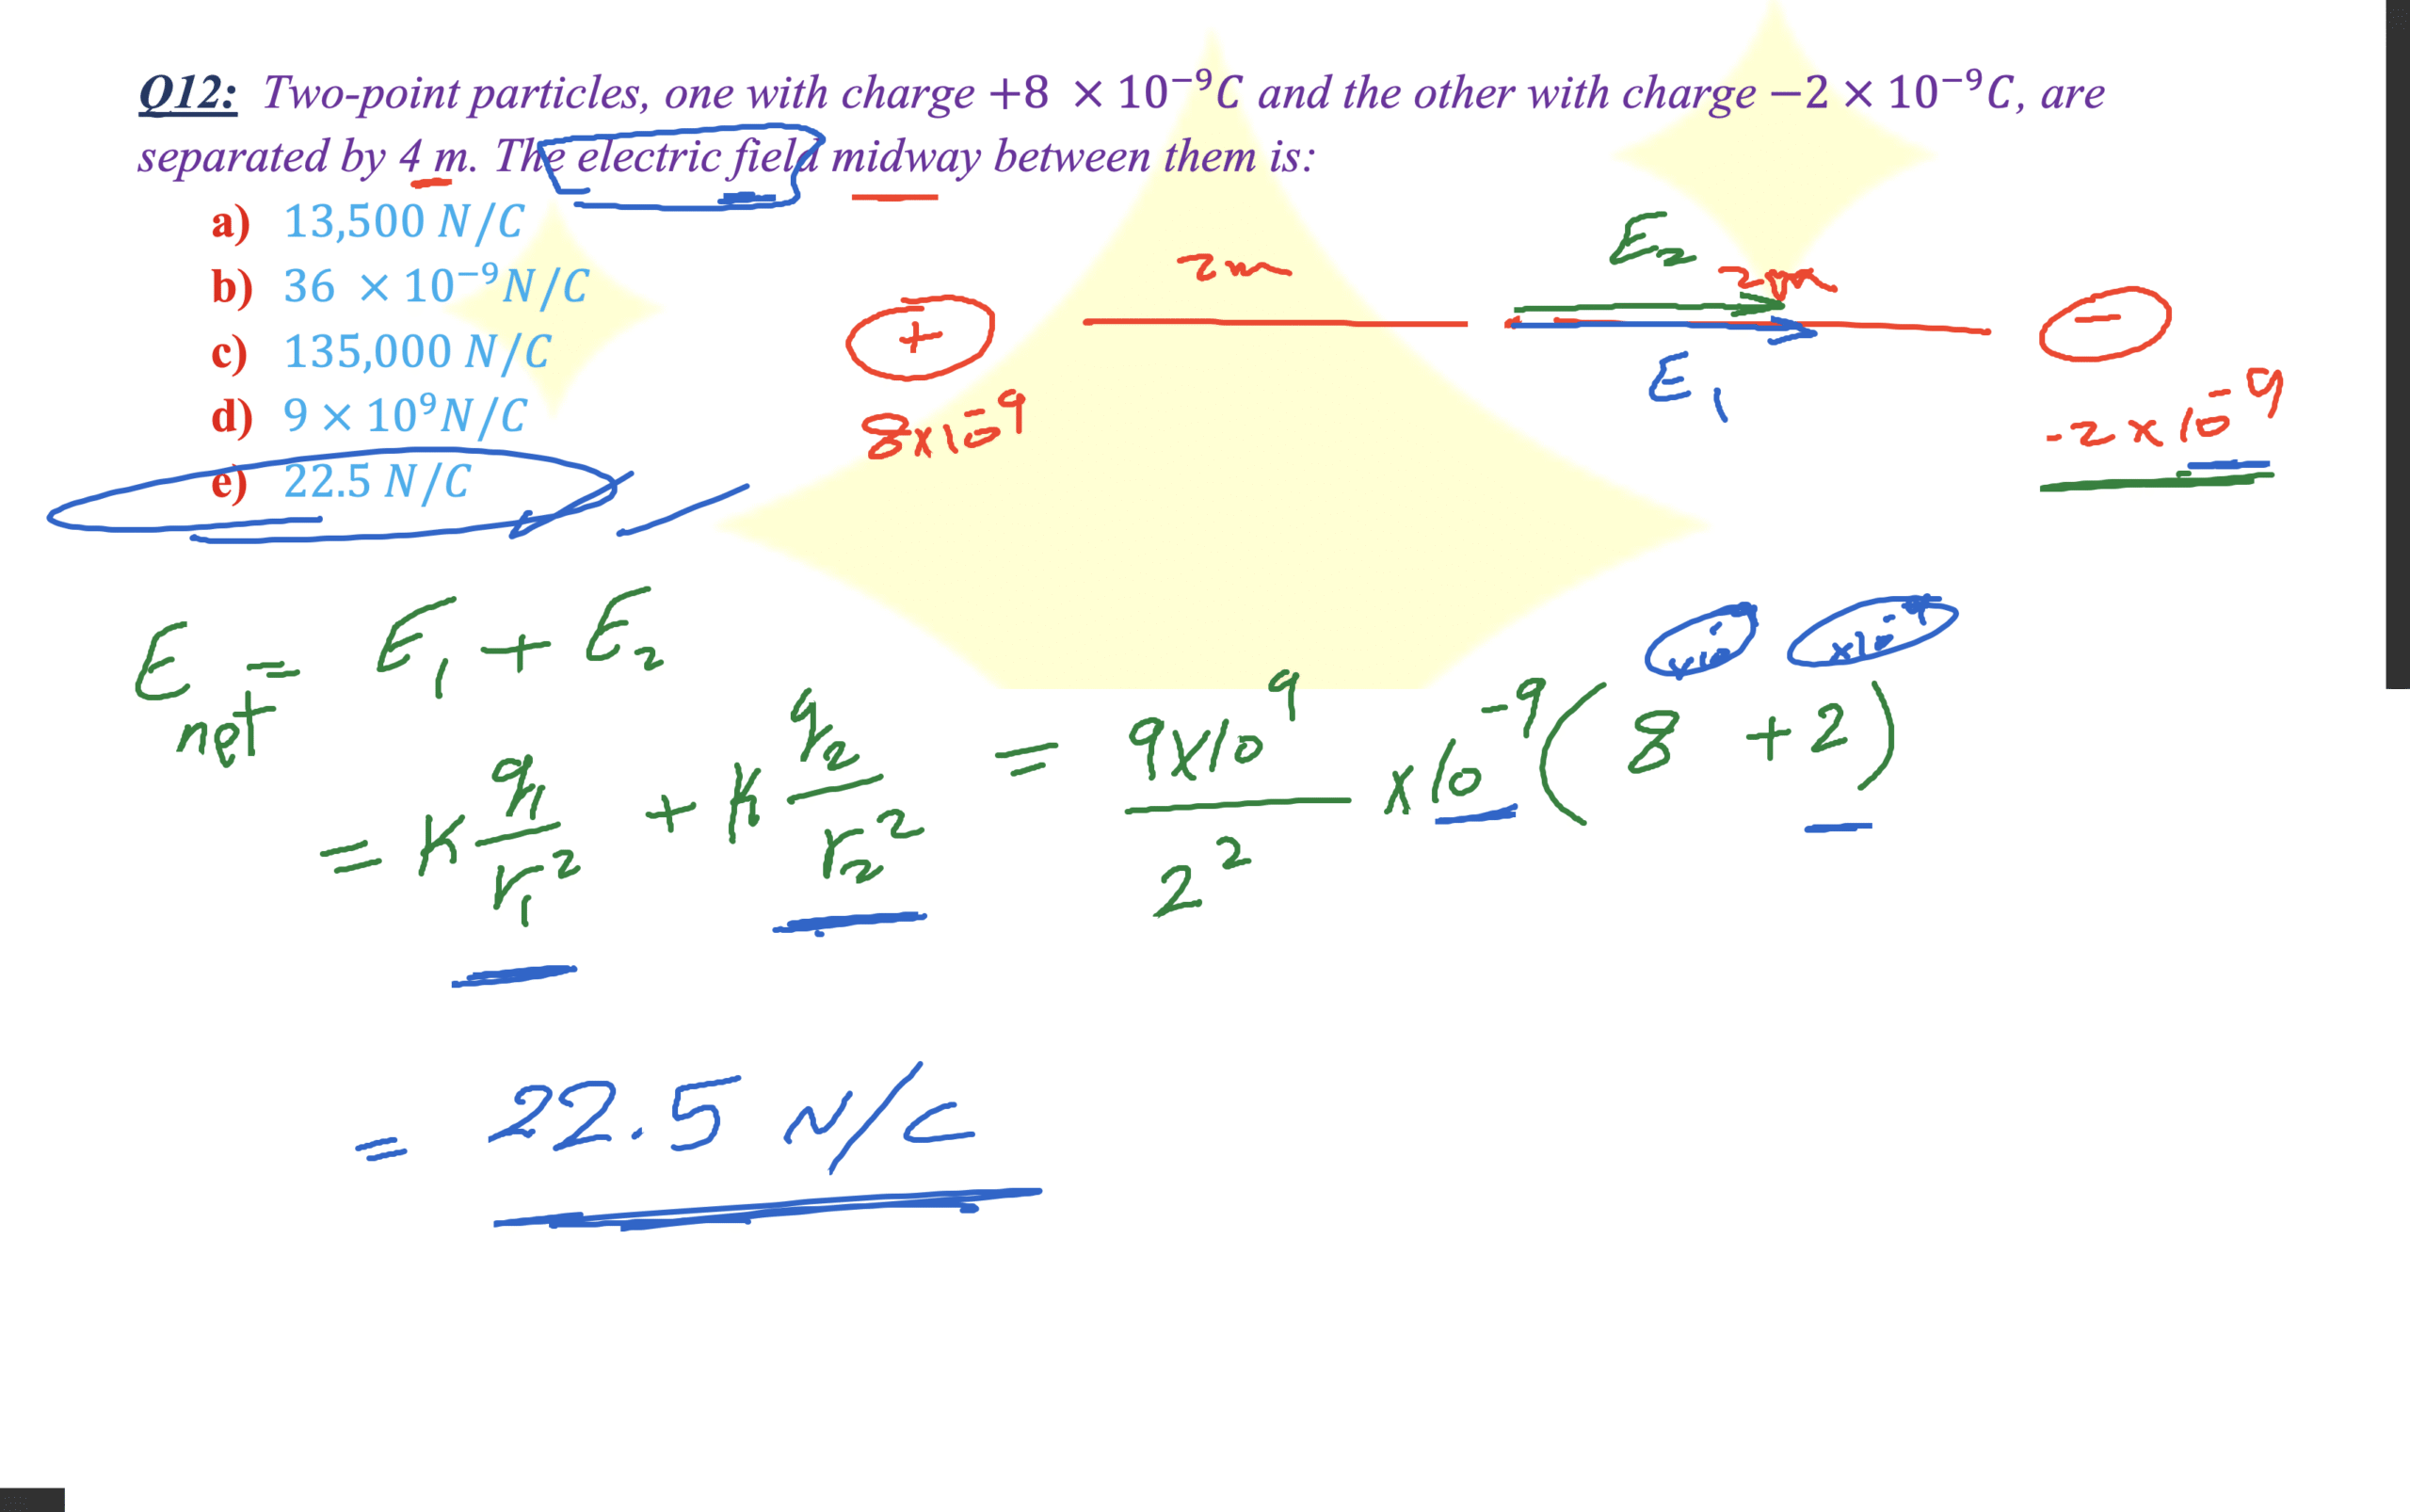 Q12: Two-point particles, one with charge +8 × 10⁻⁹C and the other with charge −2 × 10⁻⁹C, are
separated by 4 m. The electric field midway between them is:
a) 13,500 N/C
b) 36 × 10⁻⁹N/C
c) 135,000 N/C
d) 9 × 10⁹N/C
e) 22.5 N/C
E₂
2m
2m
+
−
E₁
8x10⁻⁹
-2 x 10⁻⁹
E net = E₁ + E₂
x10⁻⁹
= K q₁/r₁² + K q₂/r₂² = 9x10⁹/2² x10⁻⁹ (8 + 2)
= 22.5 N/C